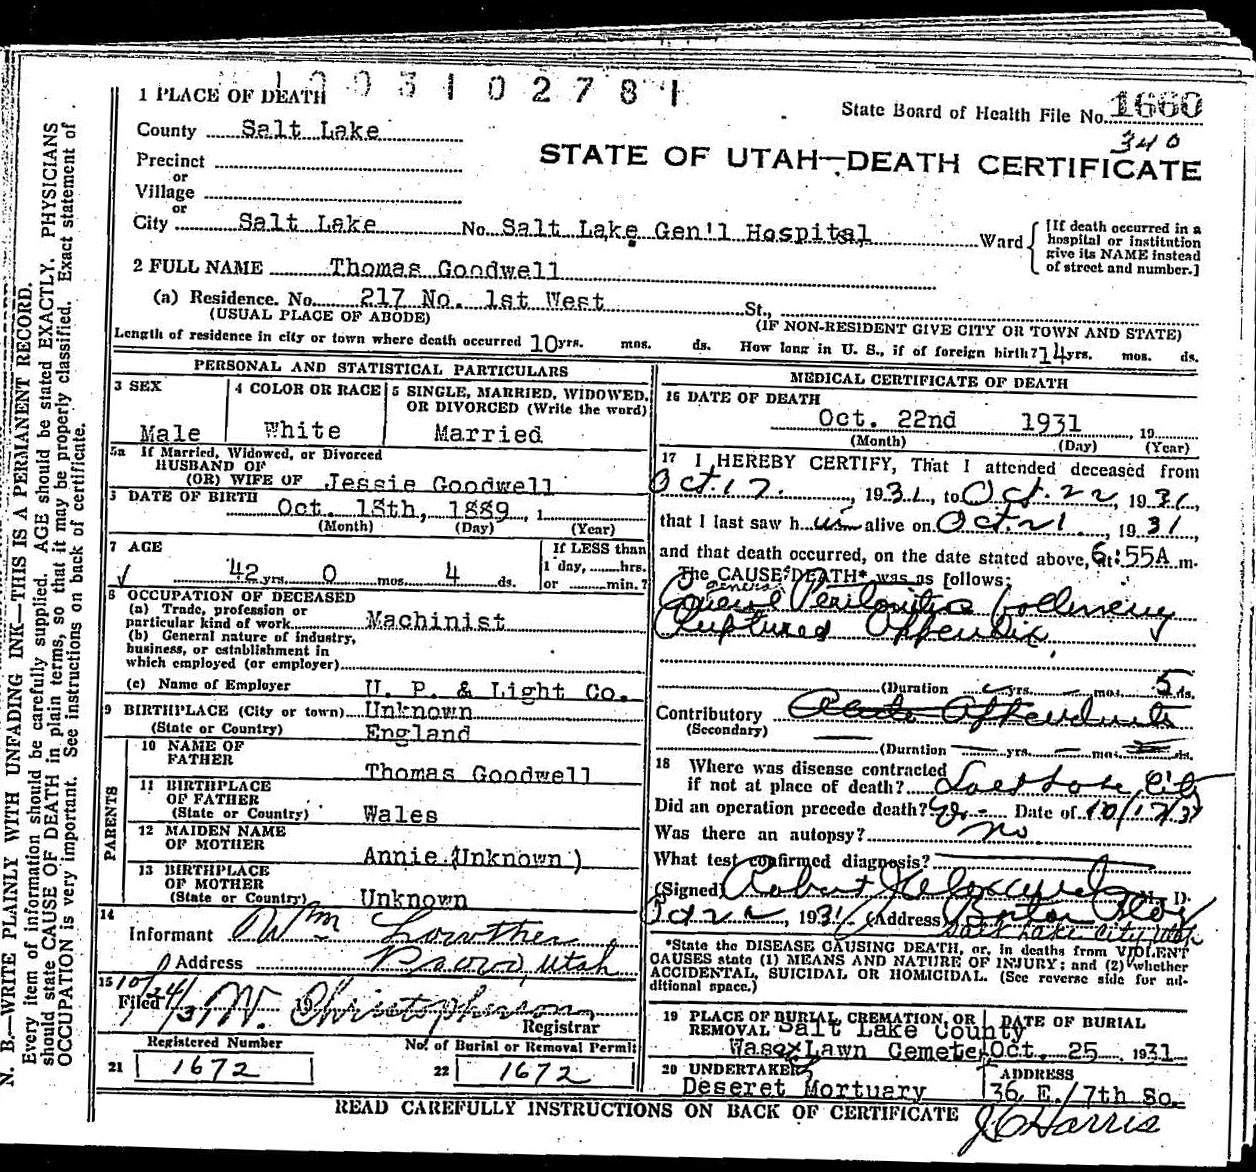 1003102781
1 PLACE OF DEATH
State Board of Health File No. 1660
County Salt Lake
340
STATE OF UTAH—DEATH CERTIFICATE
Precinct
or
Village
or
City Salt Lake No. Salt Lake Gen'l Hospital Ward
[If death occurred in a
hospital or institution
give its NAME instead
of street and number.]
2 FULL NAME Thomas Goodwell
(a) Residence. No. 217 No. 1st West St.,
(USUAL PLACE OF ABODE) (IF NON-RESIDENT GIVE CITY OR TOWN AND STATE)
Length of residence in city or town where death occurred 10 yrs. mos. ds. How long in U. S., if of foreign birth? 14 yrs. mos. ds.
PERSONAL AND STATISTICAL PARTICULARS
3 SEX
Male
4 COLOR OR RACE
White
5 SINGLE, MARRIED, WIDOWED,
OR DIVORCED (Write the word)
Married
5a If Married, Widowed, or Divorced
HUSBAND OF
(OR) WIFE OF Jessie Goodwell
DATE OF BIRTH
Oct. 18th, 1889, 1
(Month) (Day) (Year)
7 AGE
42 yrs. 0 mos. 4 ds.
If LESS than
1 day, hrs.
or min.?
8 OCCUPATION OF DECEASED
(a) Trade, profession or
particular kind of work Machinist
(b) General nature of industry,
business, or establishment in
which employed (or employer)
(c) Name of Employer U. P. & Light Co.
9 BIRTHPLACE (City or town) Unknown
(State or Country) England
PARENTS
10 NAME OF
FATHER
Thomas Goodwell
11 BIRTHPLACE
OF FATHER
(State or Country) Wales
12 MAIDEN NAME
OF MOTHER
Annie (Unknown)
13 BIRTHPLACE
OF MOTHER
(State or Country) Unknown
14
Informant Wm Lowther
Address Provo, Utah
15 10/24/31 W. Christopherson
Filed 19
Registrar
Registered Number No. of Burial or Removal Permit
21 1672 22 1672
MEDICAL CERTIFICATE OF DEATH
16 DATE OF DEATH
Oct. 22nd 1931, 19
(Month) (Day) (Year)
17 I HEREBY CERTIFY, That I attended deceased from
Oct. 17, 1931, to Oct. 22, 1931,
that I last saw him alive on Oct. 21, 1931,
and that death occurred, on the date stated above, at 6:55A m.
The CAUSE OF DEATH* was as follows:
general
Peritonitis following
Ruptured Appendix
(Duration yrs. mos. 5 ds.
Contributory Acute Appendicitis
(Secondary)
(Duration yrs. mos. ds.
18 Where was disease contracted
if not at place of death? Salt Lake City
Did an operation precede death? Yes Date of 10/17/31
Was there an autopsy? no
What test confirmed diagnosis?
(Signed) Robert M. D.
Oct 22, 1931 (Address) Boston Bldg
Salt Lake City Utah
*State the DISEASE CAUSING DEATH, or, in deaths from VIOLENT
CAUSES state (1) MEANS AND NATURE OF INJURY; and (2) whether
ACCIDENTAL, SUICIDAL OR HOMICIDAL. (See reverse side for ad-
ditional space.)
19 PLACE OF BURIAL, CREMATION, OR
REMOVAL Salt Lake County
Lawn Cemete
DATE OF BURIAL
Oct. 25 1931
20 UNDERTAKER
Deseret Mortuary
ADDRESS
36 E. 7th So.
READ CAREFULLY INSTRUCTIONS ON BACK OF CERTIFICATE
J C Harris
N. B.—WRITE PLAINLY WITH UNFADING INK—THIS IS A PERMANENT RECORD.
Every item of information should be carefully supplied. AGE should be stated EXACTLY. PHYSICIANS
should state CAUSE OF DEATH in plain terms, so that it may be properly classified. Exact statement of
OCCUPATION is very important. See instructions on back of certificate.